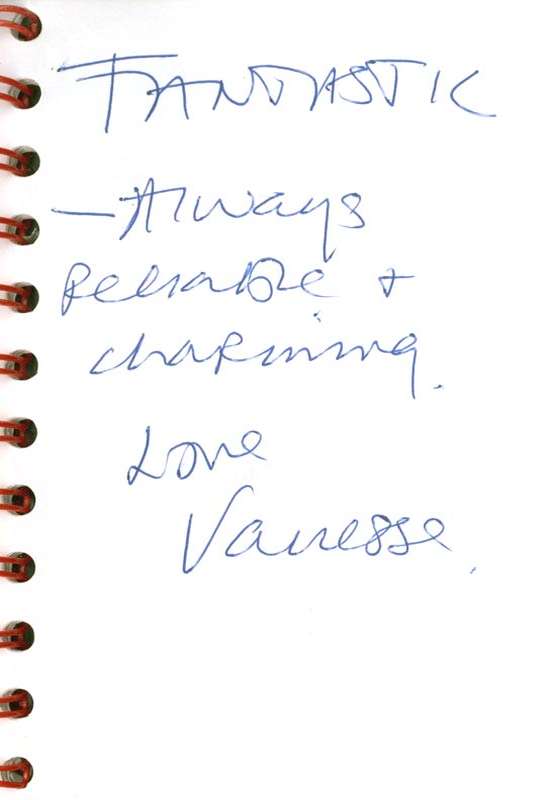 FANTASTIC
— Always
Reliable +
charming.
Love
Vanessa.